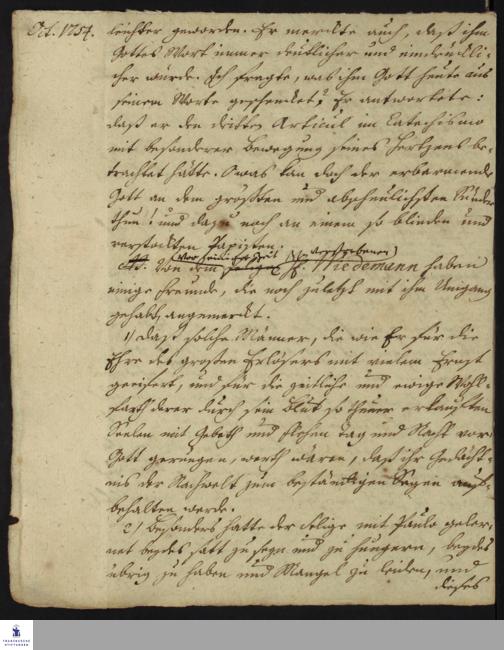 Oct. 1754.
leichter geworden. Er merckte auch, daß ihm
Gottes Wort immer deutlicher und eindrückli-
cher würde. Ich fragte, was ihm Gott heute aus
seinem Worte geschencket? Er antwortete:
daß er den dritten Articul im Catechismo
mit besonderer Bewegung seines Hertzens be-
trachtet hätte. O was kan doch der erbarmende
Gott an dem größten und abscheulichsten Sünder
thun! und dazu noch an einem so blinden und
verstockten Papisten.
Von dem H. Wiedemann haben
einige Freunde, die noch zuletzt mit ihm Umgang
gehabt, angemerckt.
1) Daß solche Männer, die wie Er für die
Ehre des großen Erlösers mit vielem Ernst
geeifert, und für die zeitliche und ewige Wohl-
farth derer durch sein Blut so theuer erkaufften
Seelen mit Gebeth und Flehen Tag und Nacht vor
Gott gerungen, werth wären, daß ihr Gedächt-
nis der Nachwelt zum beständigen Segen auf-
behalten werde.
2) Besonders hatte der selige mit Paulo geler-
net beydes satt zu seyn und zu hungern, beydes
übrig zu haben und Mangel zu leiden, und
dieses
FRANCKESCHE
STIFTUNGEN